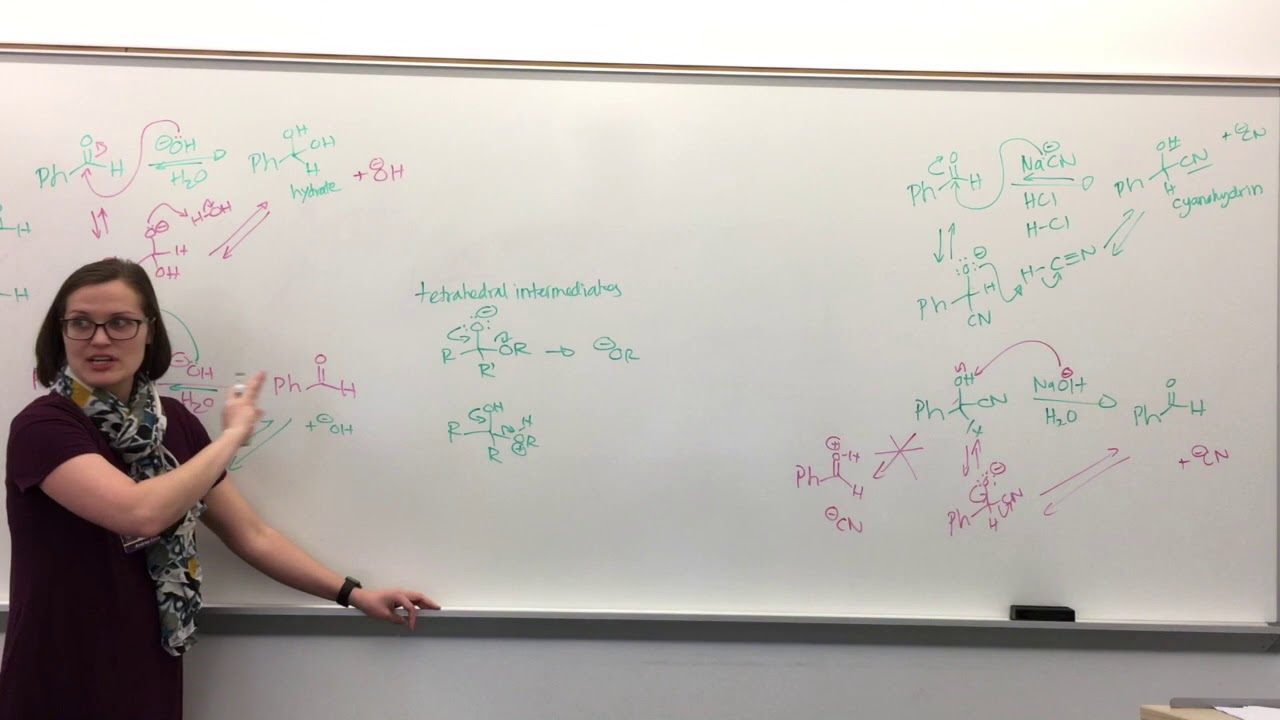 O
Ph H
⊖OH
H₂O
OH
OH
Ph H
hydrate
+ ⊖OH
H
H
O⊖
H OH
H
OH
⊖OH
H₂O
O
Ph H
+ ⊖OH
tetrahedral intermediates
O⊖
R OR
R'
→ ⊖OR
OH
R
R
H
⊕
OR
O
Ph H
⊖
NaCN
HCl
H-Cl
OH
CN
Ph H
+ ⊖CN
cyanohydrin
⊖
O
Ph H
CN
H-C≡N
OH
Ph CN
H
⊖
NaOH
H₂O
O
Ph H
+ ⊖CN
⊕
O-H
Ph H
⊖CN
O⊖
Ph CN
H